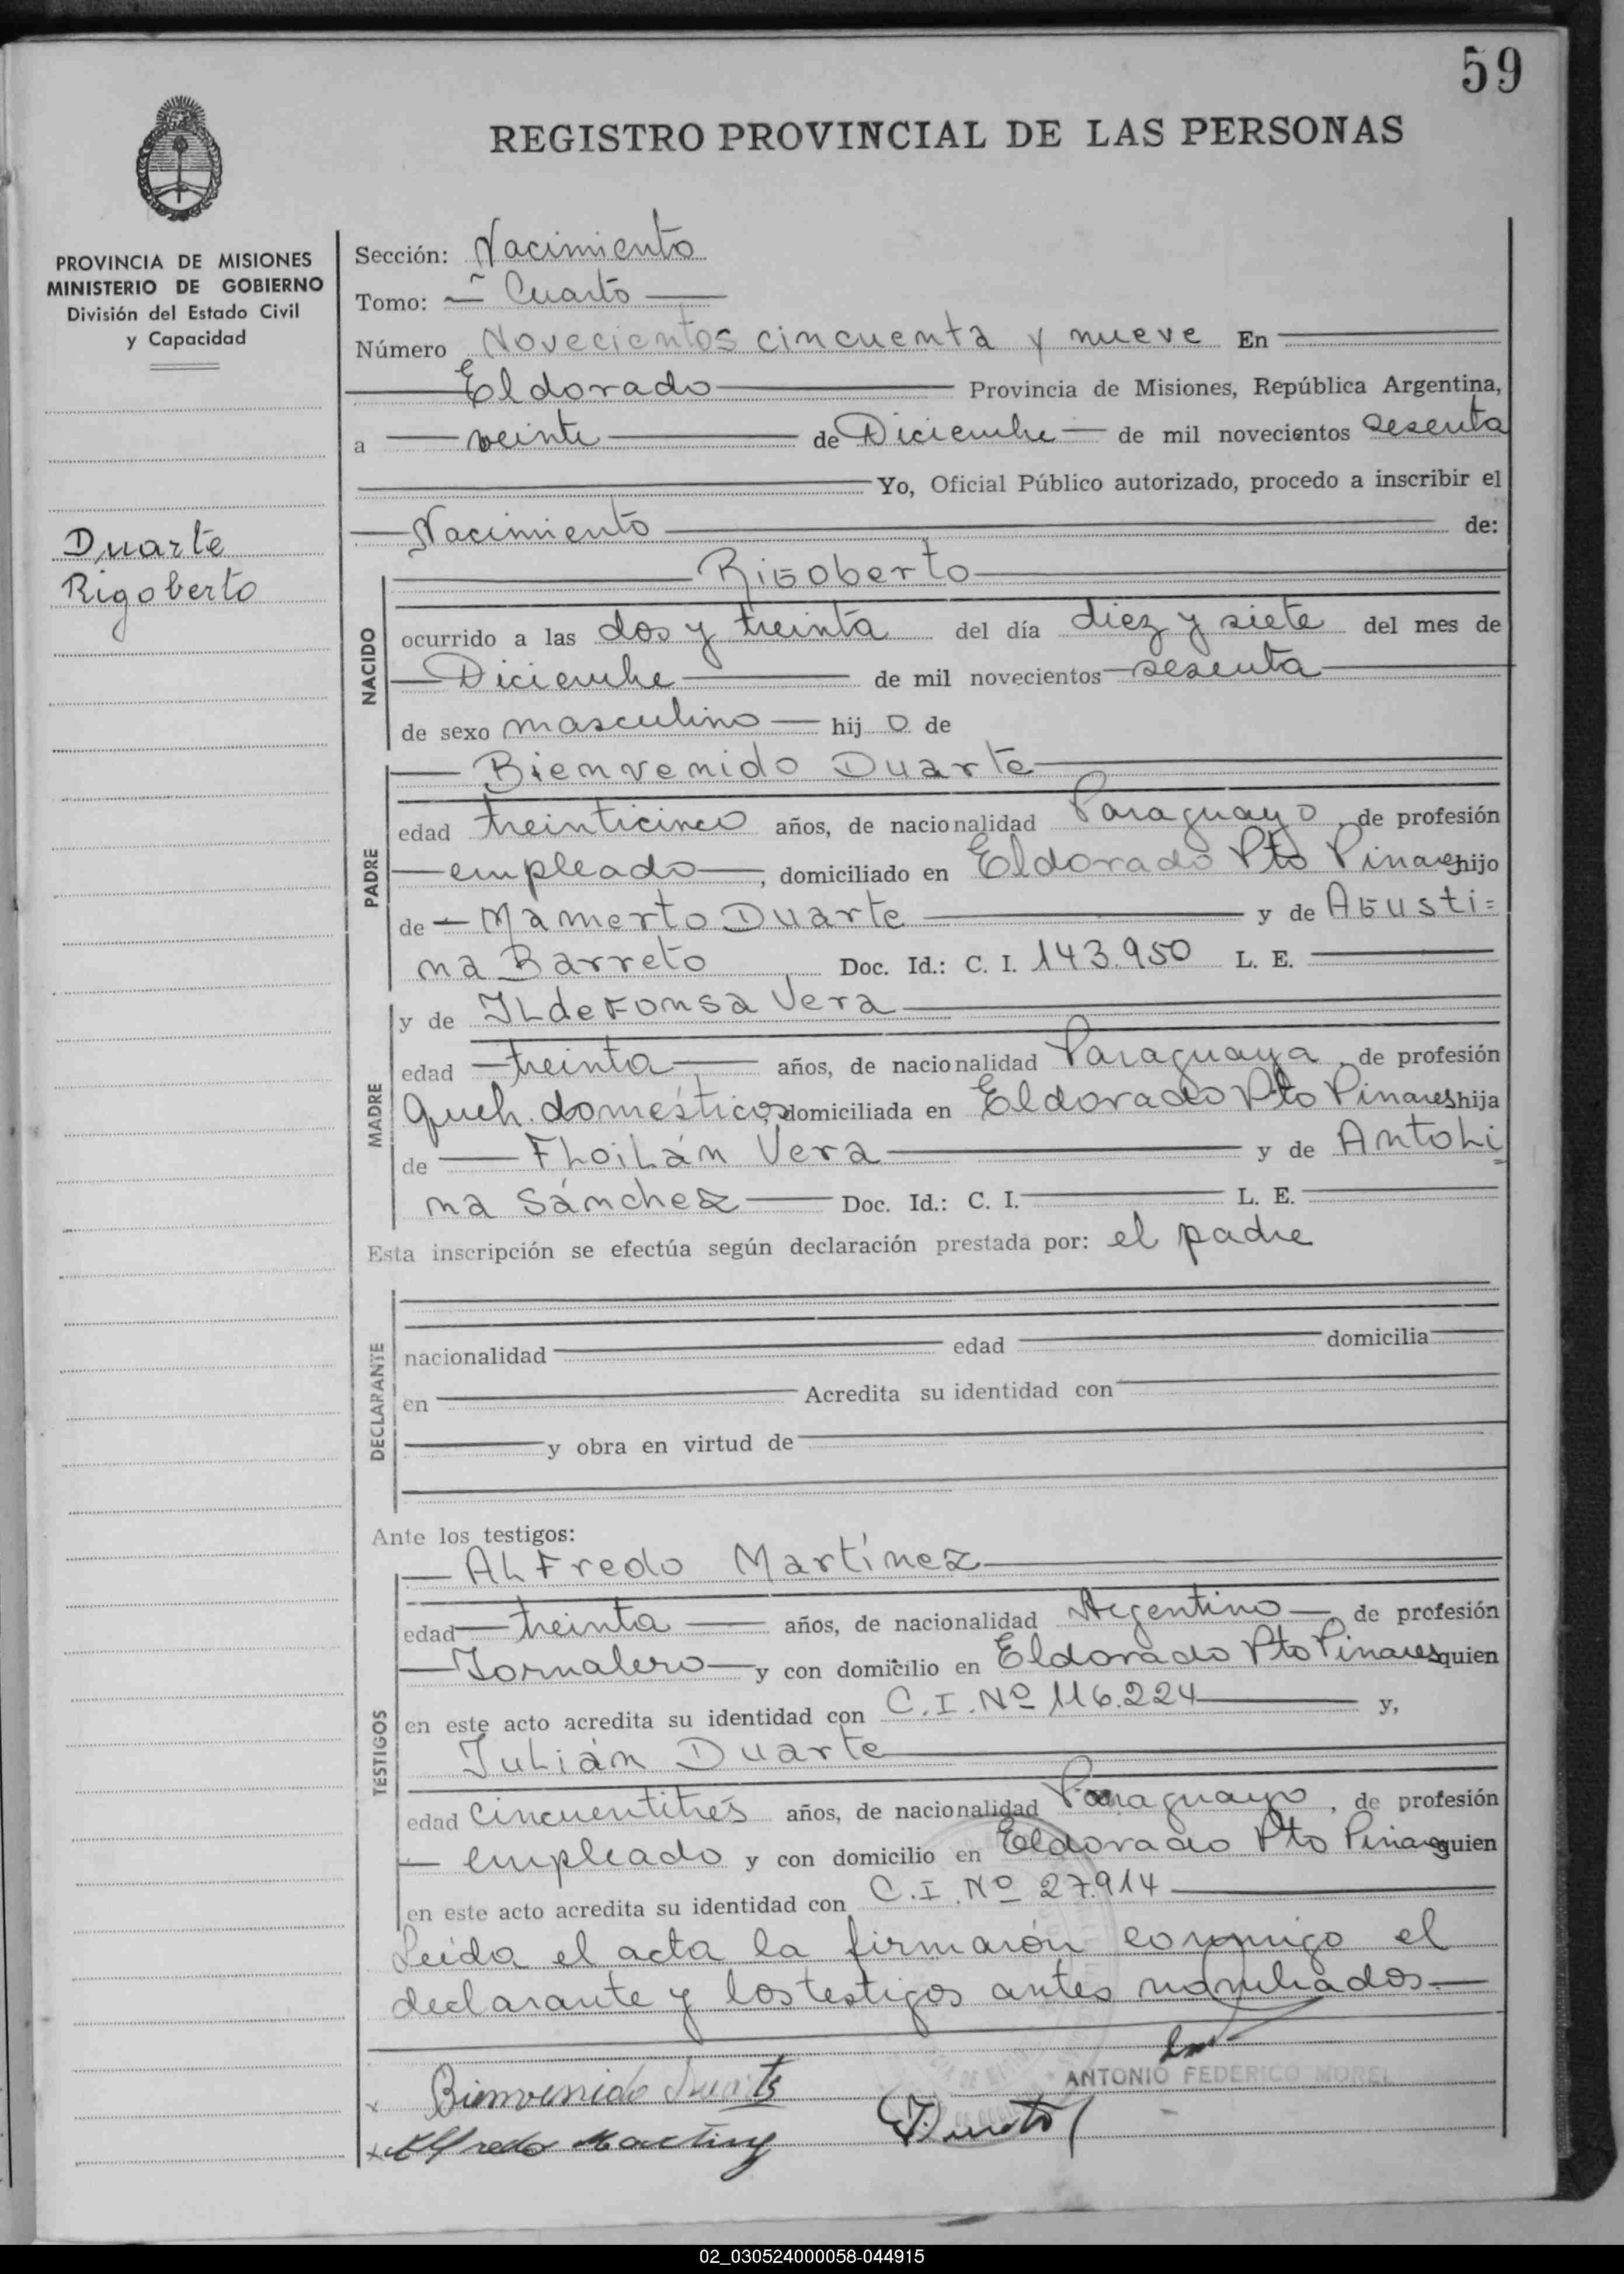 59
REGISTRO PROVINCIAL DE LAS PERSONAS
PROVINCIA DE MISIONES
MINISTERIO DE GOBIERNO
División del Estado Civil
y Capacidad
Duarte
Rigoberto
Sección: Nacimiento
Tomo: Cuarto
Número Novecientos cincuenta y nueve En
Eldorado Provincia de Misiones, República Argentina,
a veinte de Diciembre de mil novecientos sesenta
Yo, Oficial Público autorizado, procedo a inscribir el
Nacimiento de:
NACIDO
Rigoberto
ocurrido a las dos y treinta del día diez y siete del mes de
Diciembre de mil novecientos sesenta
de sexo masculino hij o de
PADRE
Bienvenido Duarte
edad treinticinco años, de nacionalidad Paraguayo, de profesión
empleado, domiciliado en Eldorado Pto Pinares hijo
de Mamerto Duarte y de Agusti=
na Barreto Doc. Id.: C. I. 143.950 L. E.
MADRE
y de Ildefonsa Vera
edad treinta años, de nacionalidad Paraguaya, de profesión
queh. domésticos, domiciliada en Eldorado Pto Pinares hija
de Floilán Vera y de Antoli=
na Sánchez Doc. Id.: C. I. L. E.
Esta inscripción se efectúa según declaración prestada por: el padre
DECLARANTE
nacionalidad edad domicilia
en Acredita su identidad con
y obra en virtud de
Ante los testigos:
TESTIGOS
Alfredo Martínez
edad treinta años, de nacionalidad Argentino, de profesión
Jornalero y con domicilio en Eldorado Pto Pinares quien
en este acto acredita su identidad con C.I. Nº 116.224 y,
Julián Duarte
edad cincuentitrés años, de nacionalidad Paraguayo, de profesión
empleado y con domicilio en Eldorado Pto Pinares quien
en este acto acredita su identidad con C.I. Nº 27.914
Leída el acta la firmarón conmigo el
declarante y los testigos antes nombrados.
ANTONIO FEDERICO MOREL
x Bienvenido Duarte
x Alfredo Martinez
J Duarte
02_030524000058-044915